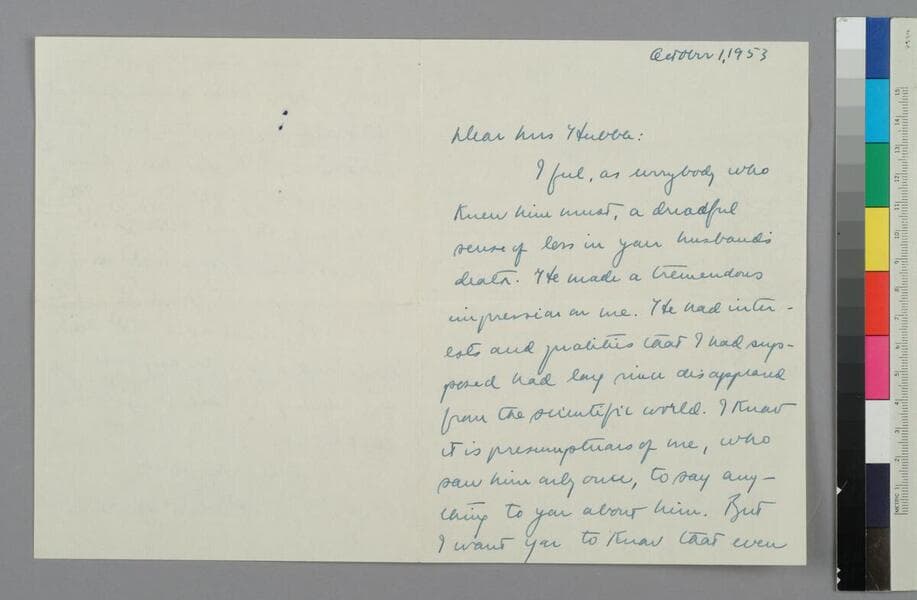 October 1, 1953
Dear Mrs Hubble:
I feel, as everybody who
knew him must, a dreadful
sense of loss in your husband's
death. He made a tremendous
impression on me. He had inter-
ests and qualities that I had sup-
posed had long since disappeared
from the scientific world. I know
it is presumptuous of me, who
saw him only once, to say any-
thing to you about him. But
I want you to know that even